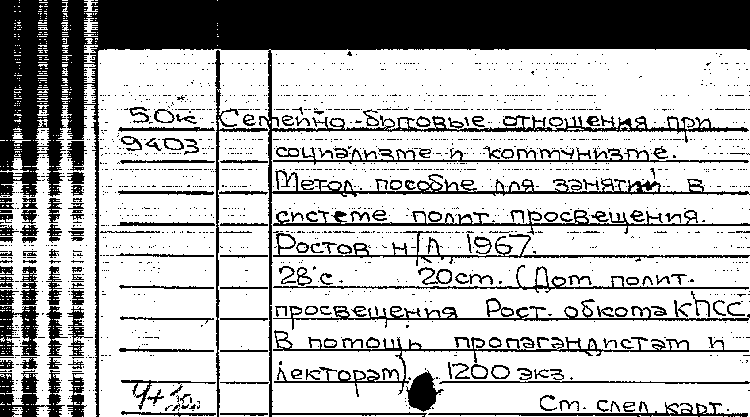 50к Семейно-бытовые отношения при
9403 социализме и коммунизме.
Метод. пособие для занятий в
системе полит. просвещения.
Ростов н/Д, 1967.
28 с. 20см. (Дом полит.
просвещения Рост. обкома КПСС.
В помощь пропагандистам и
лекторам) 1200 экз.
См. след. карт.